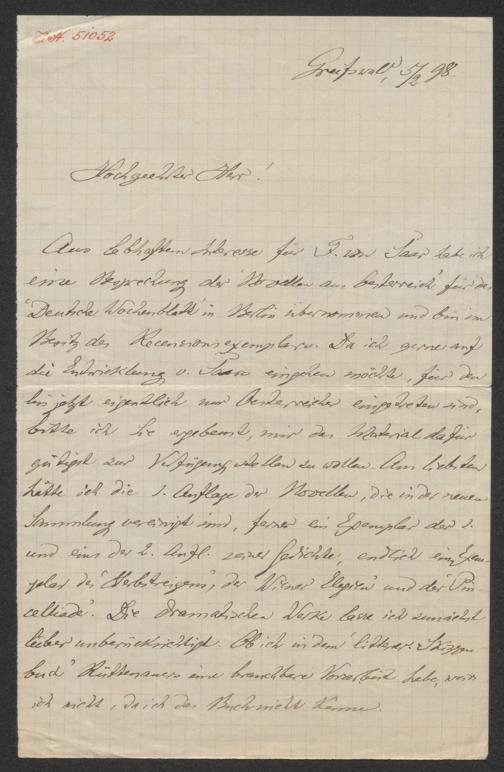 51052
Greifswald, 5/2 98.
Hochgeehrter Herr!
Aus lebhaftem Interesse für F. von Saar habe ich
eine Besprechung der 'Novellen aus Oesterreich' für das
'Deutsche Wochenblatt' in Berlin übernommen und bin im
Besitz des Recensionsexemplars. Da ich gerne auf
die Entwicklung v. Saars eingehen möchte, für den
bis jetzt eigentlich nur Oesterreicher eingetreten sind,
bitte ich Sie ergebenst, mir das Material dafür
gütigst zur Verfügung stellen zu wollen. Am liebsten
hätte ich die 1. Auflage der Novellen, die in der neuen
Sammlung vereinigt sind, ferner ein Exemplar der 1.
und eins der 2. Aufl. seiner Gedichte, endlich ein Exem-
plar des 'Herbstreigens', der 'Wiener Elegien' und der 'Pin-
celliade'. Die dramatischen Werke lasse ich zunächst
lieber unberücksichtigt. Ob ich in dem 'litterar. Skizzen-
buch' Rüttenauers eine brauchbare Vorarbeit habe, weiss
ich nicht, da ich das Buch nicht kenne.